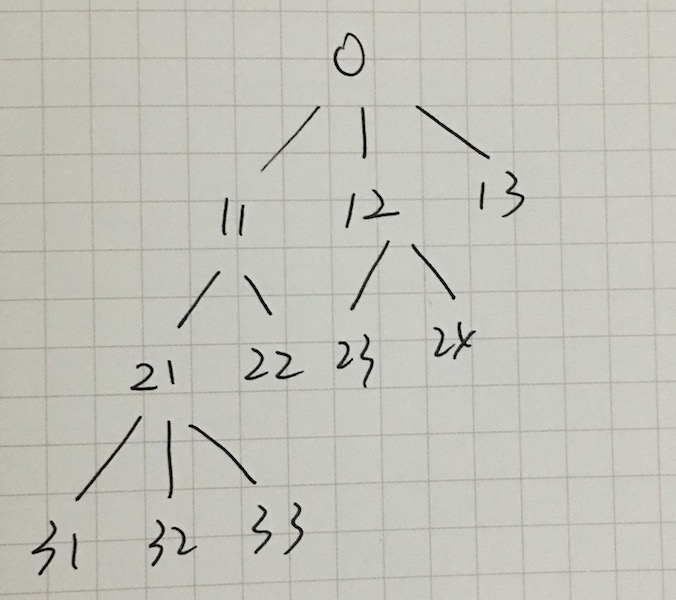 0
11 12 13
21 22 23 24
31 32 33